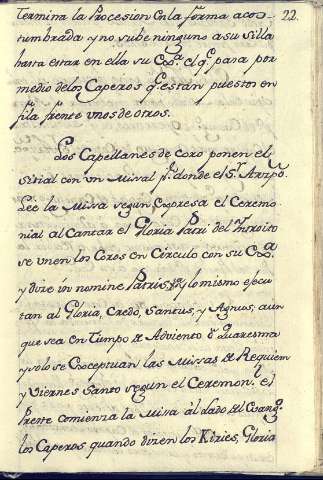 22.
termina la Procesion en la forma acos-
tumbrada y no sube ninguno a su Silla
hasta estar en ella su Exª. el qᵉ. pasa por
medio de los Caperos qᵉ. estan puestos en
fila frente unos de otros.
Los Capellanes de Coro ponen el
sitial con un Misal pʳ. donde el Sʳ. Arzpō.
Lee la Missa segun Expresa el Ceremo-
nial al Cantar el Gloria Patri del Introito
se unen los Coros en Circulo con su Exª
y dice in nomine Patris y lo mismo ejecu-
tan al Gloria, Credo, Santus, y Agnus; aun
que sea en Tiempo de Adviento ó Quaresma
y solo se Exceptuan las Missas de Requiem
y Viernes Santo segun el Ceremonˡ. el
Preste comienza la Misa al lado del Evangº.
los Caperos quando dicen los Kiries, Gloria